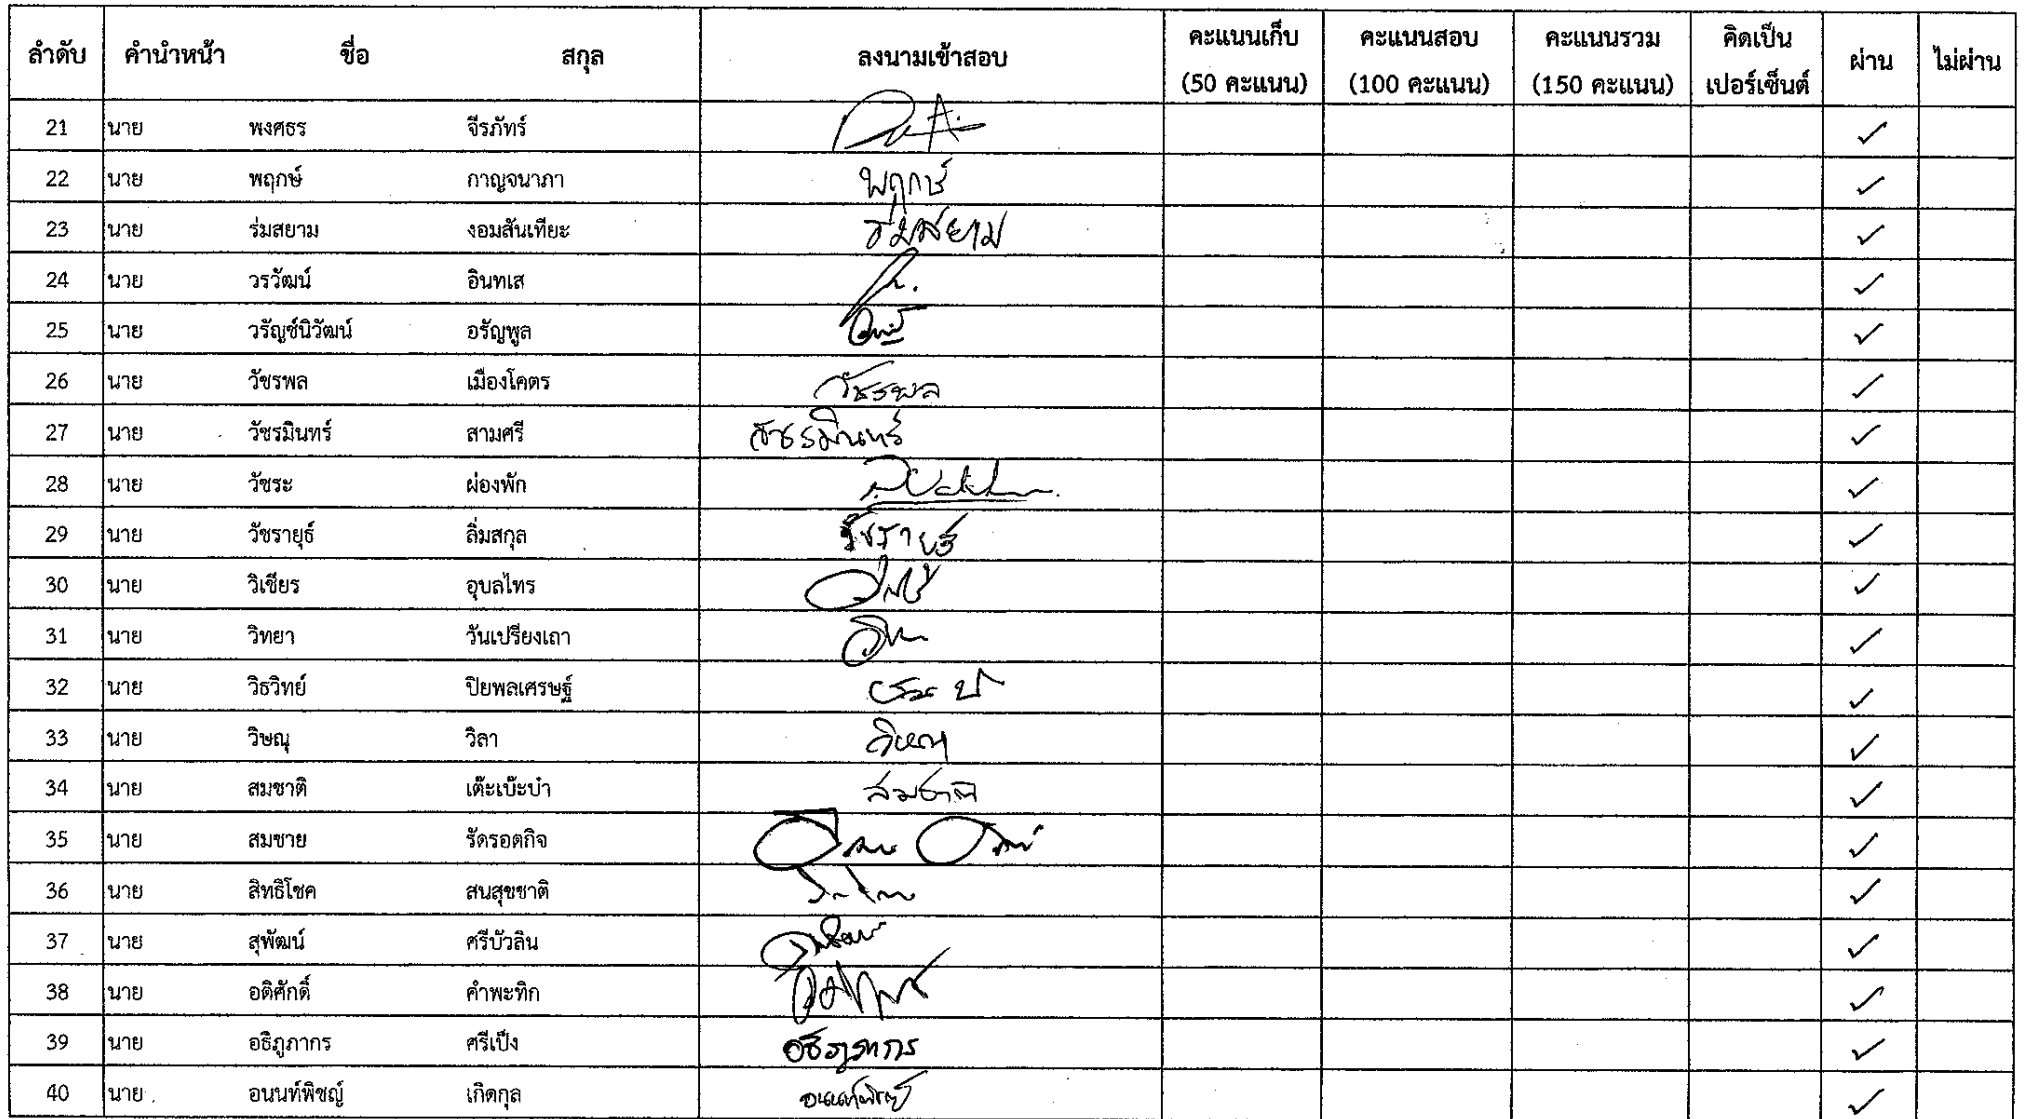 ลำดับ คำนำหน้า ชื่อ สกุล ลงนามเข้าสอบ คะแนนเก็บ (50 คะแนน) คะแนนสอบ (100 คะแนน) คะแนนรวม (150 คะแนน) คิดเป็น เปอร์เซ็นต์ ผ่าน ไม่ผ่าน
21 นาย พงศธร จีรภัทร์ ✓
22 นาย พฤกษ์ กาญจนาภา พฤกษ์ ✓
23 นาย ร่มสยาม งอมสันเทียะ ร่มสยาม ✓
24 นาย วรวัฒน์ อินทเส ✓
25 นาย วรัญช์นิวัฒน์ อรัญพูล ✓
26 นาย วัชรพล เมืองโคตร วัชรพล ✓
27 นาย วัชรมินทร์ สามศรี วัชรมินทร์ ✓
28 นาย วัชระ ผ่องพัก ✓
29 นาย วัชรายุธ์ ลิ่มสกุล วัชรายุธ์ ✓
30 นาย วิเชียร อุบลไทร ✓
31 นาย วิทยา วันเปรียงเถา ✓
32 นาย วิธวิทย์ ปิยพลเศรษฐ์ ✓
33 นาย วิษณุ วิลา วิษณุ ✓
34 นาย สมชาติ เต๊ะเบ๊ะบ๋า สมชาติ ✓
35 นาย สมชาย รัดรอดกิจ ✓
36 นาย สิทธิโชค สนสุขชาติ ✓
37 นาย สุพัฒน์ ศรีบัวลิน ✓
38 นาย อดิศักดิ์ คำพะทิก ✓
39 นาย อธิภูภากร ศรีเป็ง อธิภูภากร ✓
40 นาย อนนท์พิชญ์ เกิดกุล อนนท์พิชญ์ ✓